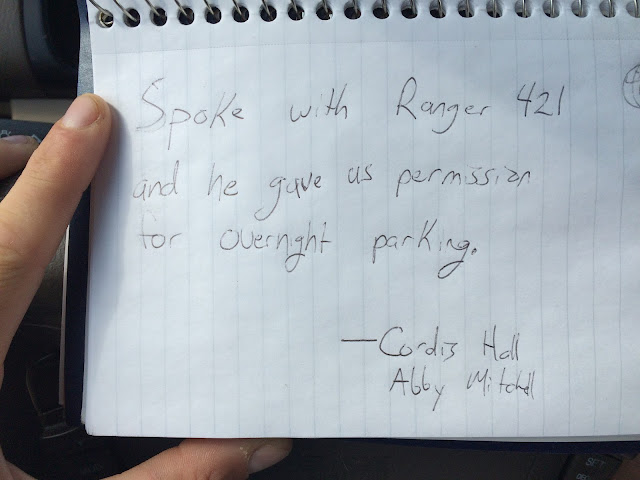 Spoke with Ranger 421
and he gave us permission
for overnight parking.
—Cordis Hall
Abby Mitchell